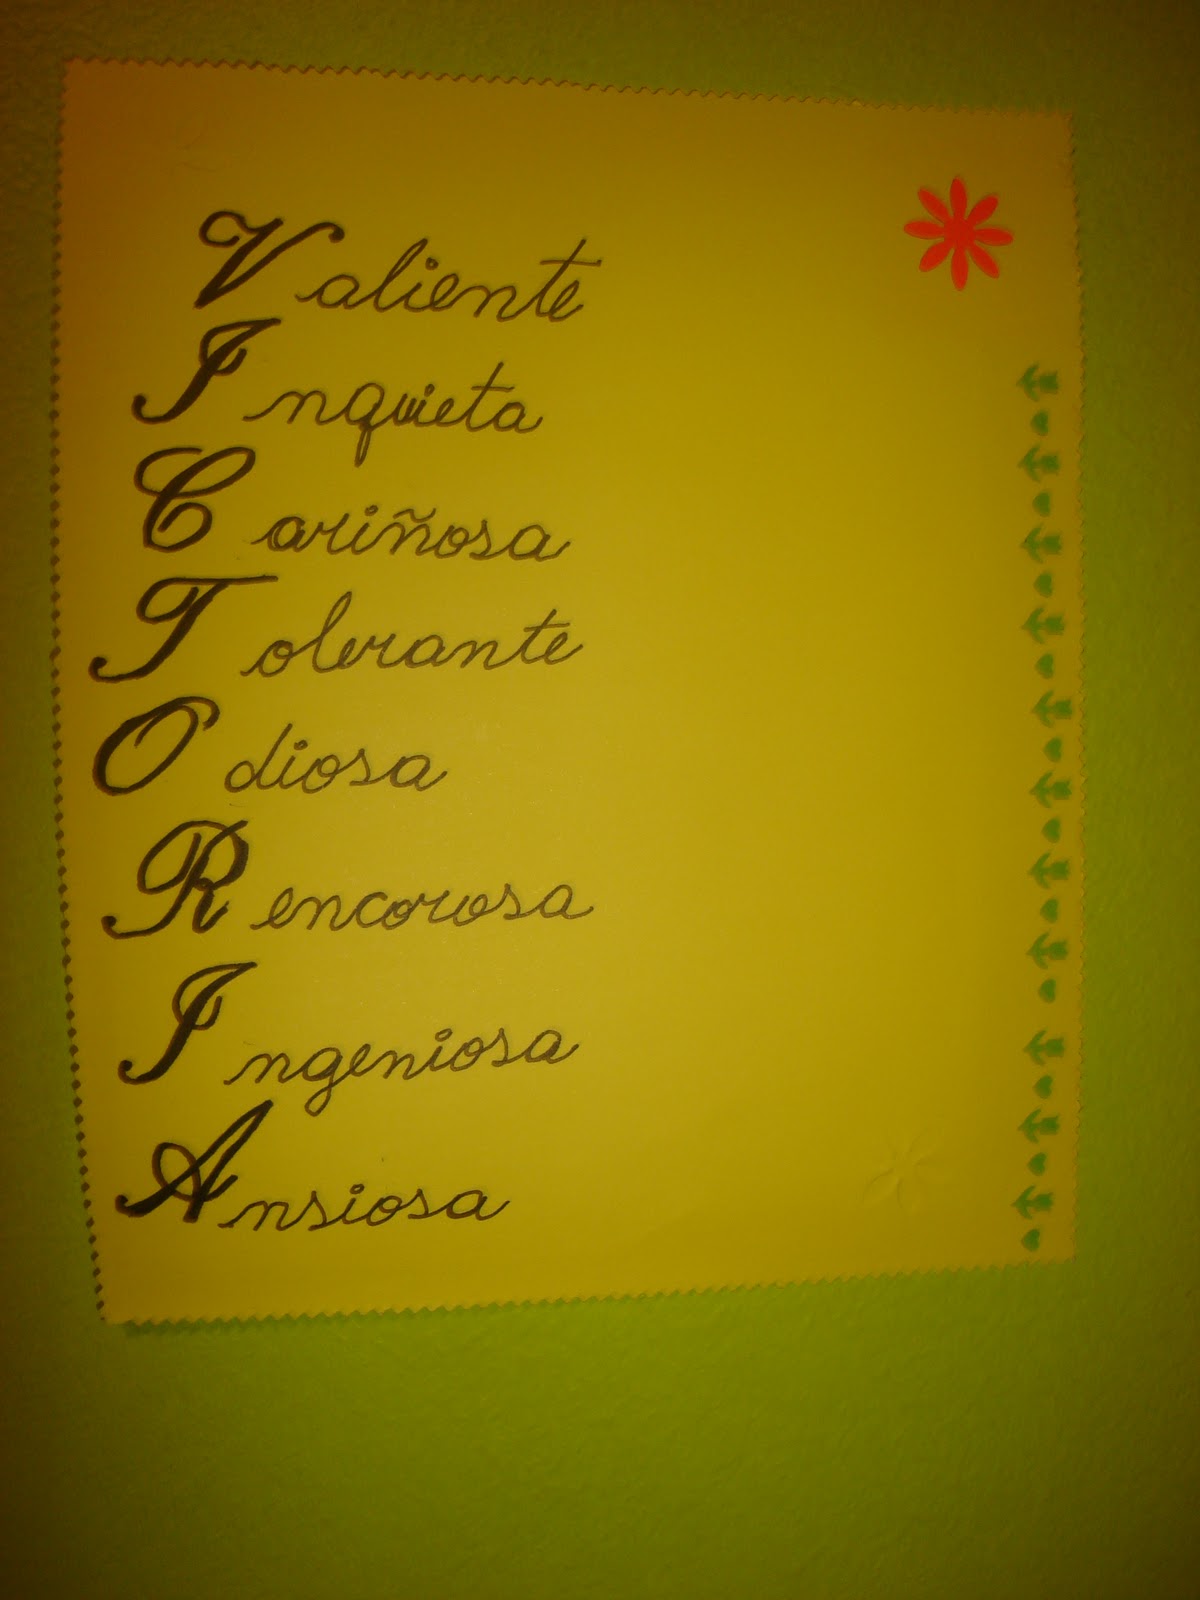 Valiente
Inquieta
Cariñosa
Tolerante
Odiosa
Rencorosa
Ingeniosa
Ansiosa